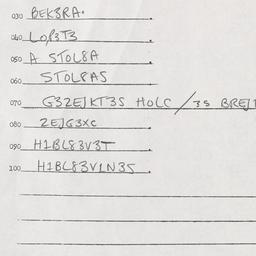 030 BEK8RA.
040 LOP3T3
050 A STOL8A
060 STOL8AS
070 G3ZEJKT3S HOLC / 3S BREJT
080 ZEJG3XC
090 H1BL83V3T
100 H1BL83V1N3S